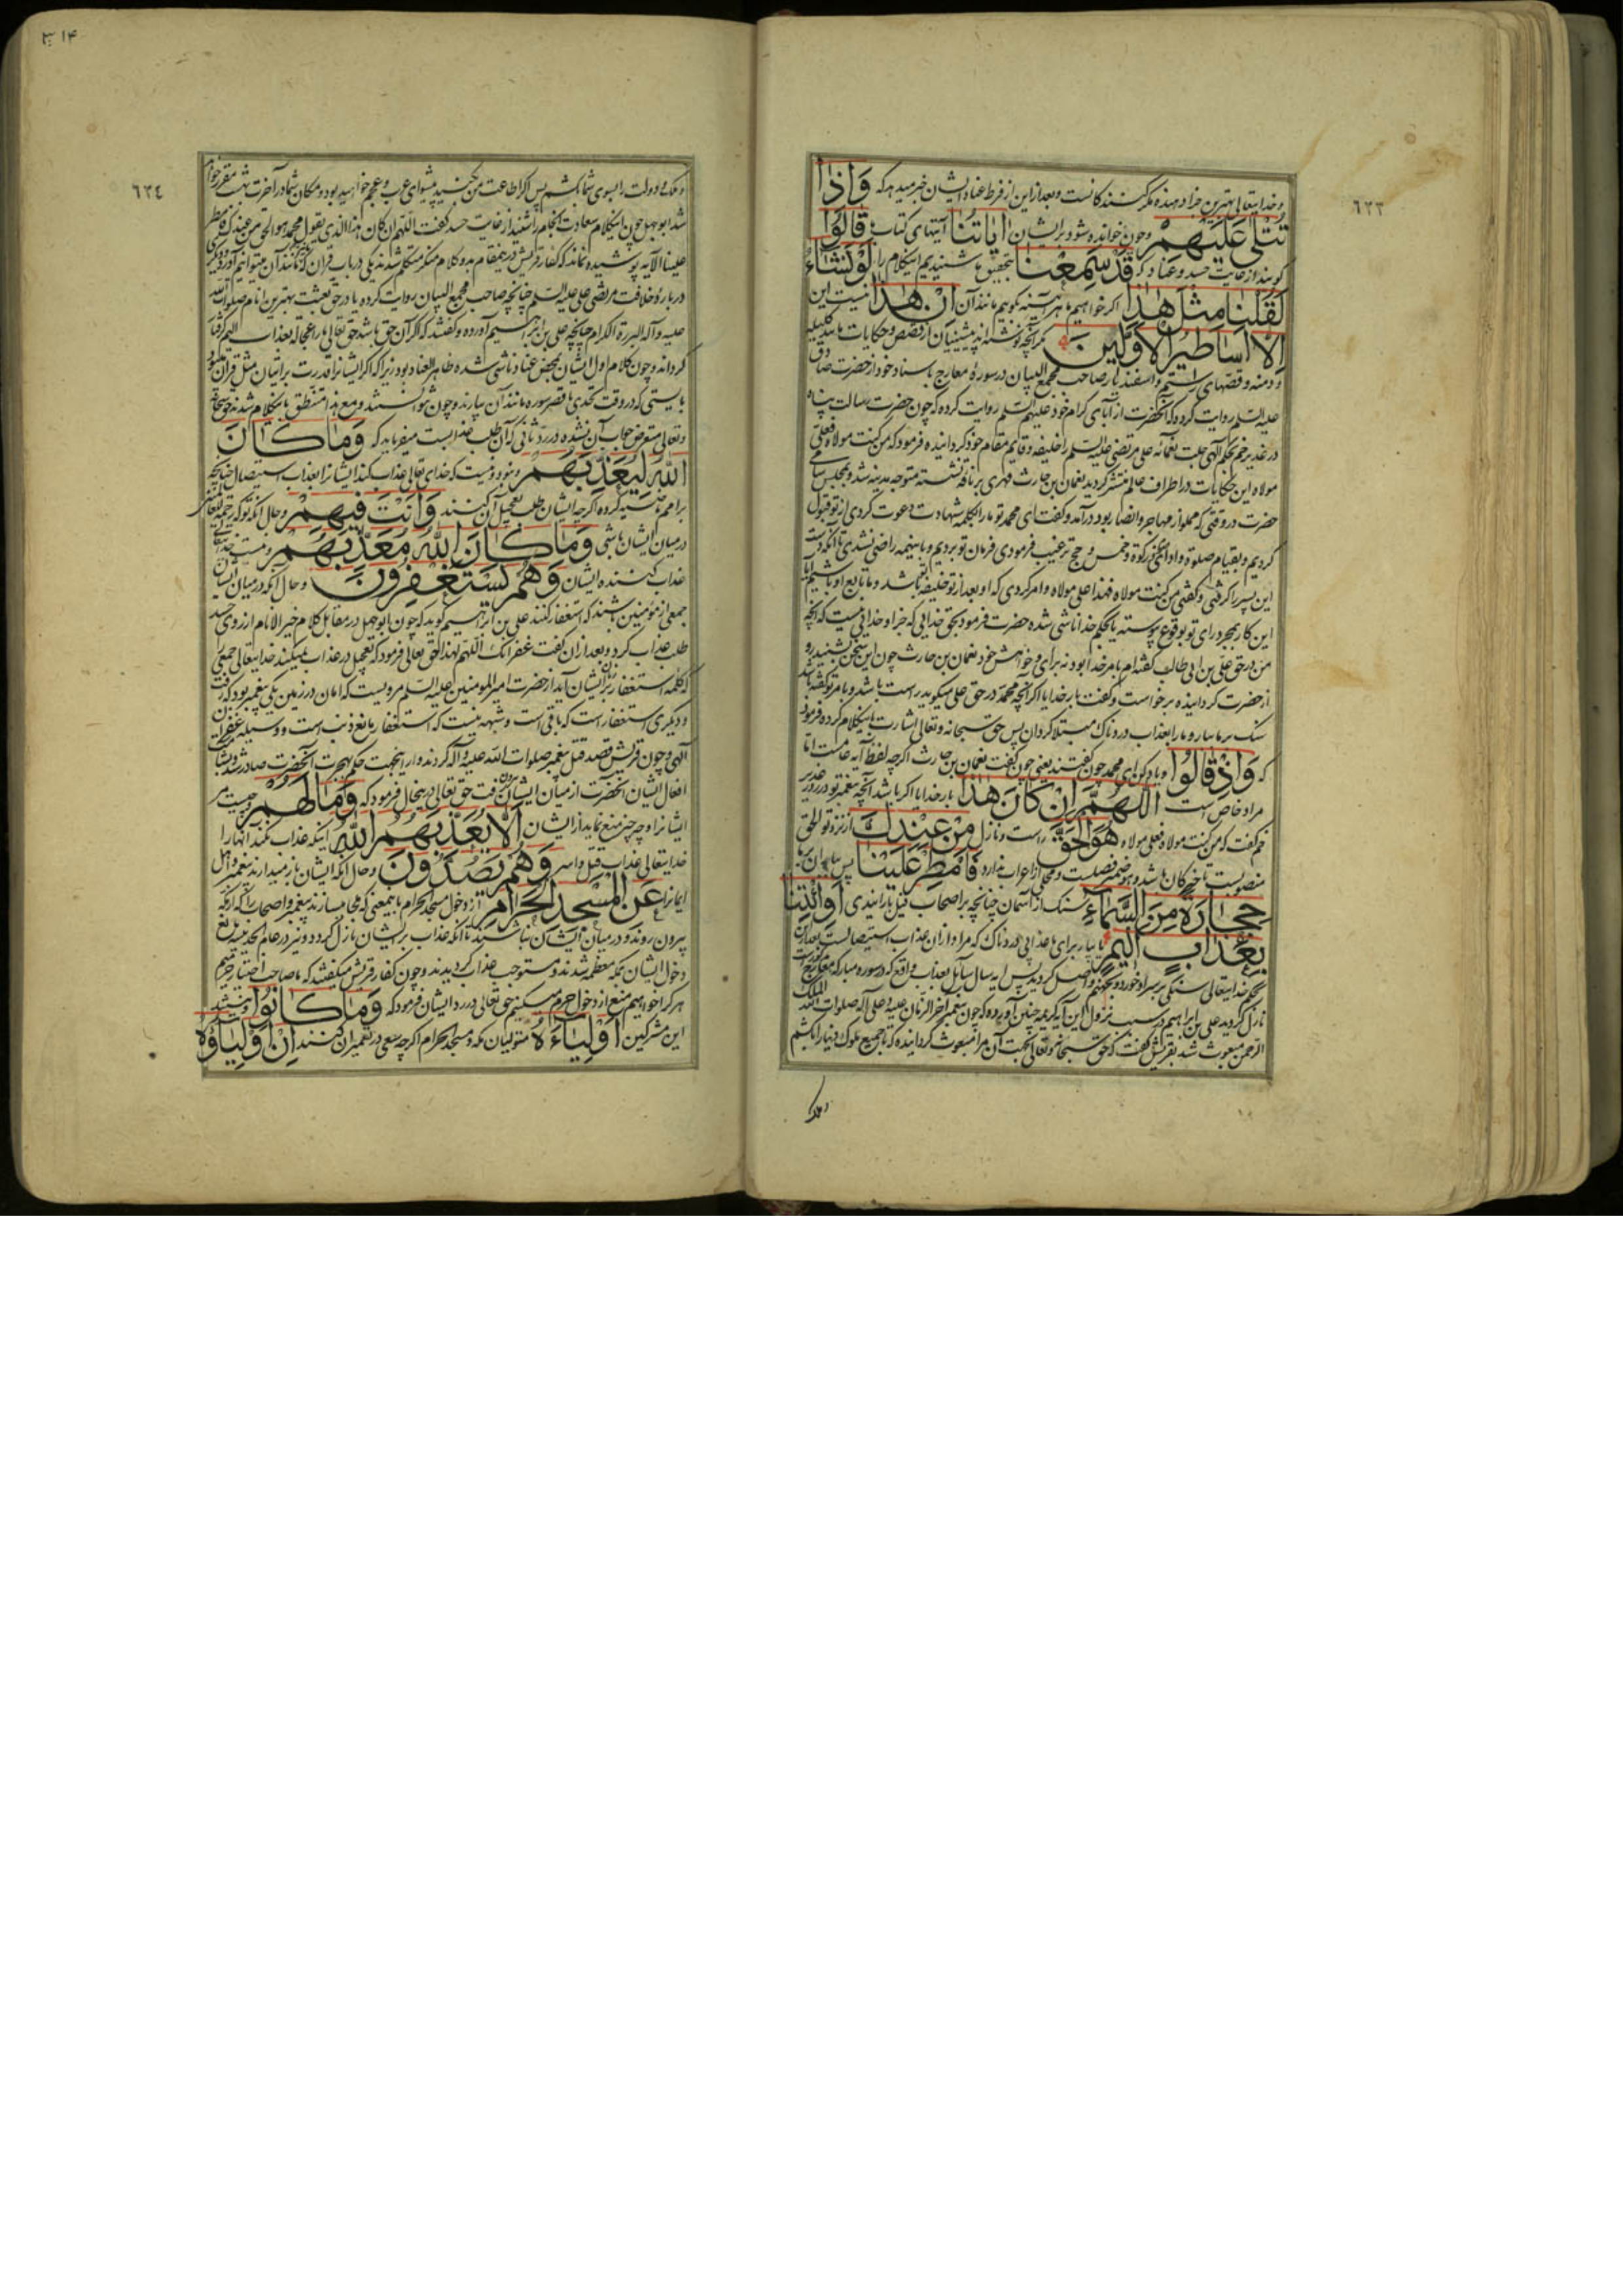 و خدایتعالی بهترین جزا دهنده مکر کنندکانست و بعد از این از فرط عناد ایشان خبر میدهد که وَاِذَا
تُتْلٰى عَلَيْهِمْ و چون خوانده شود بر ایشان اٰيَاتُنَا آیتهای کتاب ما قَالُوْا
کویند از غایت حسد و عناد که قَدْ سَمِعْنَا بتحقیق شنیدیم اینکلام را لَوْ نَشَاءُ
لَقُلْنَا مِثْلَ هٰذَا اکر خواهیم ما هر آینه بکوییم مانند آن اِنْ هٰذَا نیست این
اِلَّا اَسَاطِيْرُ الْاَوَّلِيْنَ مکر آنچه نوشته اند پیشینیان از قصص و حکایات مانند کلیله
و دمنه و قصهای رستم و اسفندیار صاحب مجمع البیان در سوره معارج باسناد خود از حضرت صادق
علیه السلم روایت کرده که آنحضرت از آبای کرام خود علیهم السلم روایت کرده که چون حضرت رسالت پناه
در غدیر خم بحکم آلهی جلت نعمائه علی مرتضی علیه السلم را خلیفه و قایم مقام خود کردانیده فرمود که من کنت مولاه فعلی
مولاه این حکایات در اطراف عالم منتشر کردید نعمان بن حارث فهری بر ناقه نشسته متوجه مدینه شد و بمجلس سامی
حضرت در وقتی که مملو از مهاجر و انصار بود در آمد و کفت ای محمد تو ما را بکلمه شهادت دعوت کردی از تو قبول
کردیم و بقیام صلوة و ادای زکوة و خمس و حج ترغیب فرمودی فرمان تو بردیم و باینهمه راضی نشدی تا آنکه دست
این پسر را کرفتی و کفتی من کنت مولاه فهذا علی مولاه و امر کردی که او بعد از تو خلیفه تو باشد و ما تابع او باشیم آیا
این کار بمجرد رای تو بوقوع پیوسته یا بحکم خدا ناشی شده حضرت فرمود بحق خدایی که جز او خدایی نیست که آنچه
من در حق علی بن ابی طالب کفته ام بامر خدا بود نه برای و خواهش خود نعمان بن حارث چون این سخن بشنید رو
از حضرت کردانیده برخواست و کفت بار خدایا اکر آنچه محمد در حق علی میکوید راست باشد و بامر تو کفته باشد
سنک بر ما ببار و ما را بعذاب دردناک مبتلا کردان پس حق سبحانه و تعالی اشارت باینکلام کرده فرمود
که وَاِذْ قَالُوْا و یاد کن ای محمد چون کفتند یعنی چون کفت نعمان بن حارث اکرچه لفظ آیه عامست اما
مراد خاص است اَللّٰهُمَّ اِنْ كَانَ هٰذَا بار خدایا اکر باشد آنچه پیغمبر تو در روز غدیر
خم کفت که من کنت مولاه فعلی مولاه هُوَ الْحَقَّ راست و نازل مِنْ عِنْدِكَ از نزد تو الحق
منصوبست تا خبر کان باشد و هو ضمیر فصلست و محلی از اعراب ندارد فَاَمْطِرْ عَلَيْنَا پس بباران بر ما
حِجَارَةً مِنَ السَّمَاءِ سنک از آسمان چنانچه بر اصحاب فیل بارانیدی اَوِ ائْتِنَا
بِعَذَابٍ اَلِيْمٍ یا بیار برای ما عذابی دردناک که مراد از آن عذاب استیصالست بعد از این
بحکم خدایتعالی سنکی بر سر او خورد و بجهنم واصل کردید پس آیه سال سائل بعذاب واقع که در سوره مبارکه معارج است
نازل کردید علی بن ابراهیم در سبب نزول این آیه کریمه چنین آورده که چون پیغمبر آخر الزمان علیه و علی آله صلوات الملک
الرحمن مبعوث شد بقریش کفت که حق سبحانه و تعالی بجهت آن مرا مبعوث کردانیده که تا جمیع ملوک دنیا را بکشم
و ملک
٦٣٣
٣١۴
٦٣٤
و ملک و دولت را بسوی شما بکشم پس اکر اطاعت من کنید پیشوای عرب و عجم خواهید بود و مکان شما در آخرت بهشت مقرر خواهد
شد ابوجهل چون اینکلام سعادت انجام را شنید از غایت حسد کفت اللهم ان کان هذا الذی یقول محمد هو الحق من عندک فامطر
علینا الآیه پوشیده نماند که کفار قریش در این مقام بدو کلام منکر متکلم شدند یکی در باب قران که ما نیز مانند آن میتوانیم آورد و دیکری
در باره خلافت مرتضی علی علیه السلم چنانچه صاحب مجمع البیان روایت کرده یا در حق بعثت بهترین انام صلوات الله
علیه و آله البررة الکرام چنانچه علی بن ابراهیم آورده و کفتند که اکر آن حق باشد حق تعالی ما را عجالة بعذاب الیم کرفتار
کرداند و چون کلام اول ایشان بمحض عناد ناشی شده ظاهر الفساد بود زیرا که اکر ایشانرا قدرت بر اتیان مثل قران میبود
بایستی که در وقت تحدی باقصر سوره مانند آن بیارند و چون نتوانستند و مع هذا متنطق باینکلام شدند حق سبحانه
و تعالی متعرض جواب آن نشده در رد ثانی که آن طلب عذابست میفرماید که وَمَا كَانَ
اللّٰهُ لِيُعَذِّبَهُمْ و نبود و نیست که خدای تعالی عذاب کند ایشانرا بعذاب استیصال چنانچه
بر امم ماضیه کرده اکرچه ایشان طلب تعجیل آن کنند وَاَنْتَ فِيْهِمْ و حال آنکه تو که رحمة للعالمینی
در میان ایشان باشی وَمَا كَانَ اللّٰهُ مُعَذِّبَهُمْ و نیست خدایتعالی
عذاب کننده ایشان وَهُمْ يَسْتَغْفِرُوْنَ و حال آنکه در میان ایشان
جمعی از مؤمنین باشند که استغفار کنند علی بن ابراهیم کوید که چون ابوجهل در مقابل کلام خیر الانام از روی حسد
طلب عذاب کرد و بعد از آن کفت غفرانک اللهم لهذا حق تعالی فرمود که تعجیل در عذاب نمیکند خدایتعالی جمعی
که کلمه استغفار بر زبان ایشان آید از حضرت امیر المومنین علیه السلم مرویست که امان در زمین یکی پیغمبر بود که رفت
و دیکری استغفار است که باقی است و شبهه نیست که استغفار مانع ذنب است و وسیله غفران
آلهی و چون قریش قصد قتل پیغمبر صلوات الله علیه و آله کردند و از اینجهت حکم هجرت آنحضرت صادر شد و بشآمت
افعال ایشان آنحضرت از میان ایشان بیرون رفت حق تعالی در اینحال فرمود که وَمَا لَهُمْ و چیست مر
ایشانرا و چه چیز منع نماید از ایشان اَلَّا يُعَذِّبَهُمُ اللّٰهُ اینکه عذاب نکند آنها را
خدایتعالی عذاب قتل و اسر وَهُمْ يَصُدُّوْنَ و حال آنکه ایشان باز میدارند پیغمبر و اهل
ایمانرا عَنِ الْمَسْجِدِ الْحَرَامِ از دخول مسجد الحرام باینمعنی که ملجا میسازند پیغمبر و اصحاب را که از مکه
بیرون روند و در میان ایشان نباشند تا آنکه عذاب بر ایشان نازل کردد و نیز در عام الحدیبیه مانع
دخول ایشان بمکه معظمه شدند و مستوجب عذاب کردیدند و چون کفار قریش میکفتند که ما صاحب اختیار حرمیم
هر کرا خواهیم منع از دخول حرم میکنیم حق تعالی در رد ایشان فرمود که وَمَا كَانُوْا و نیستند
این مشرکین اَوْلِيَاءَهُ متولیان مکه و مسجد الحرام اکرچه سعی در تعمیر آن کنند اِنْ اَوْلِيَاؤُهُ